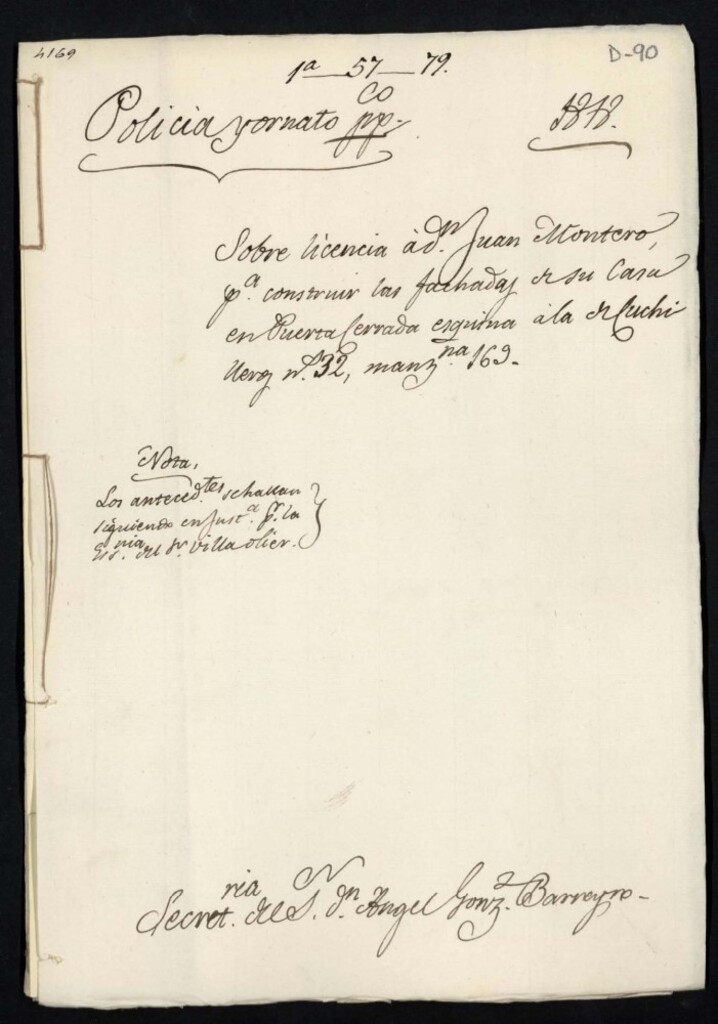 4169
D-90
1ª 57 79.
Policia y ornato pp.co
1818.
Sobre licencia à dn. Juan Montero,
pª. construir las fachadas de su Casa
en Puerta Cerrada esquina à la de Cuchi
lleros n.º 32, manz.na 169.
Nota,
Los anteced.tes se hallan
siguiendo en Just.ª pr. la
Ess.nia del Sr. Villa olier.
Secret.ria del S.r dn. Angel Gonz.z Barreyro